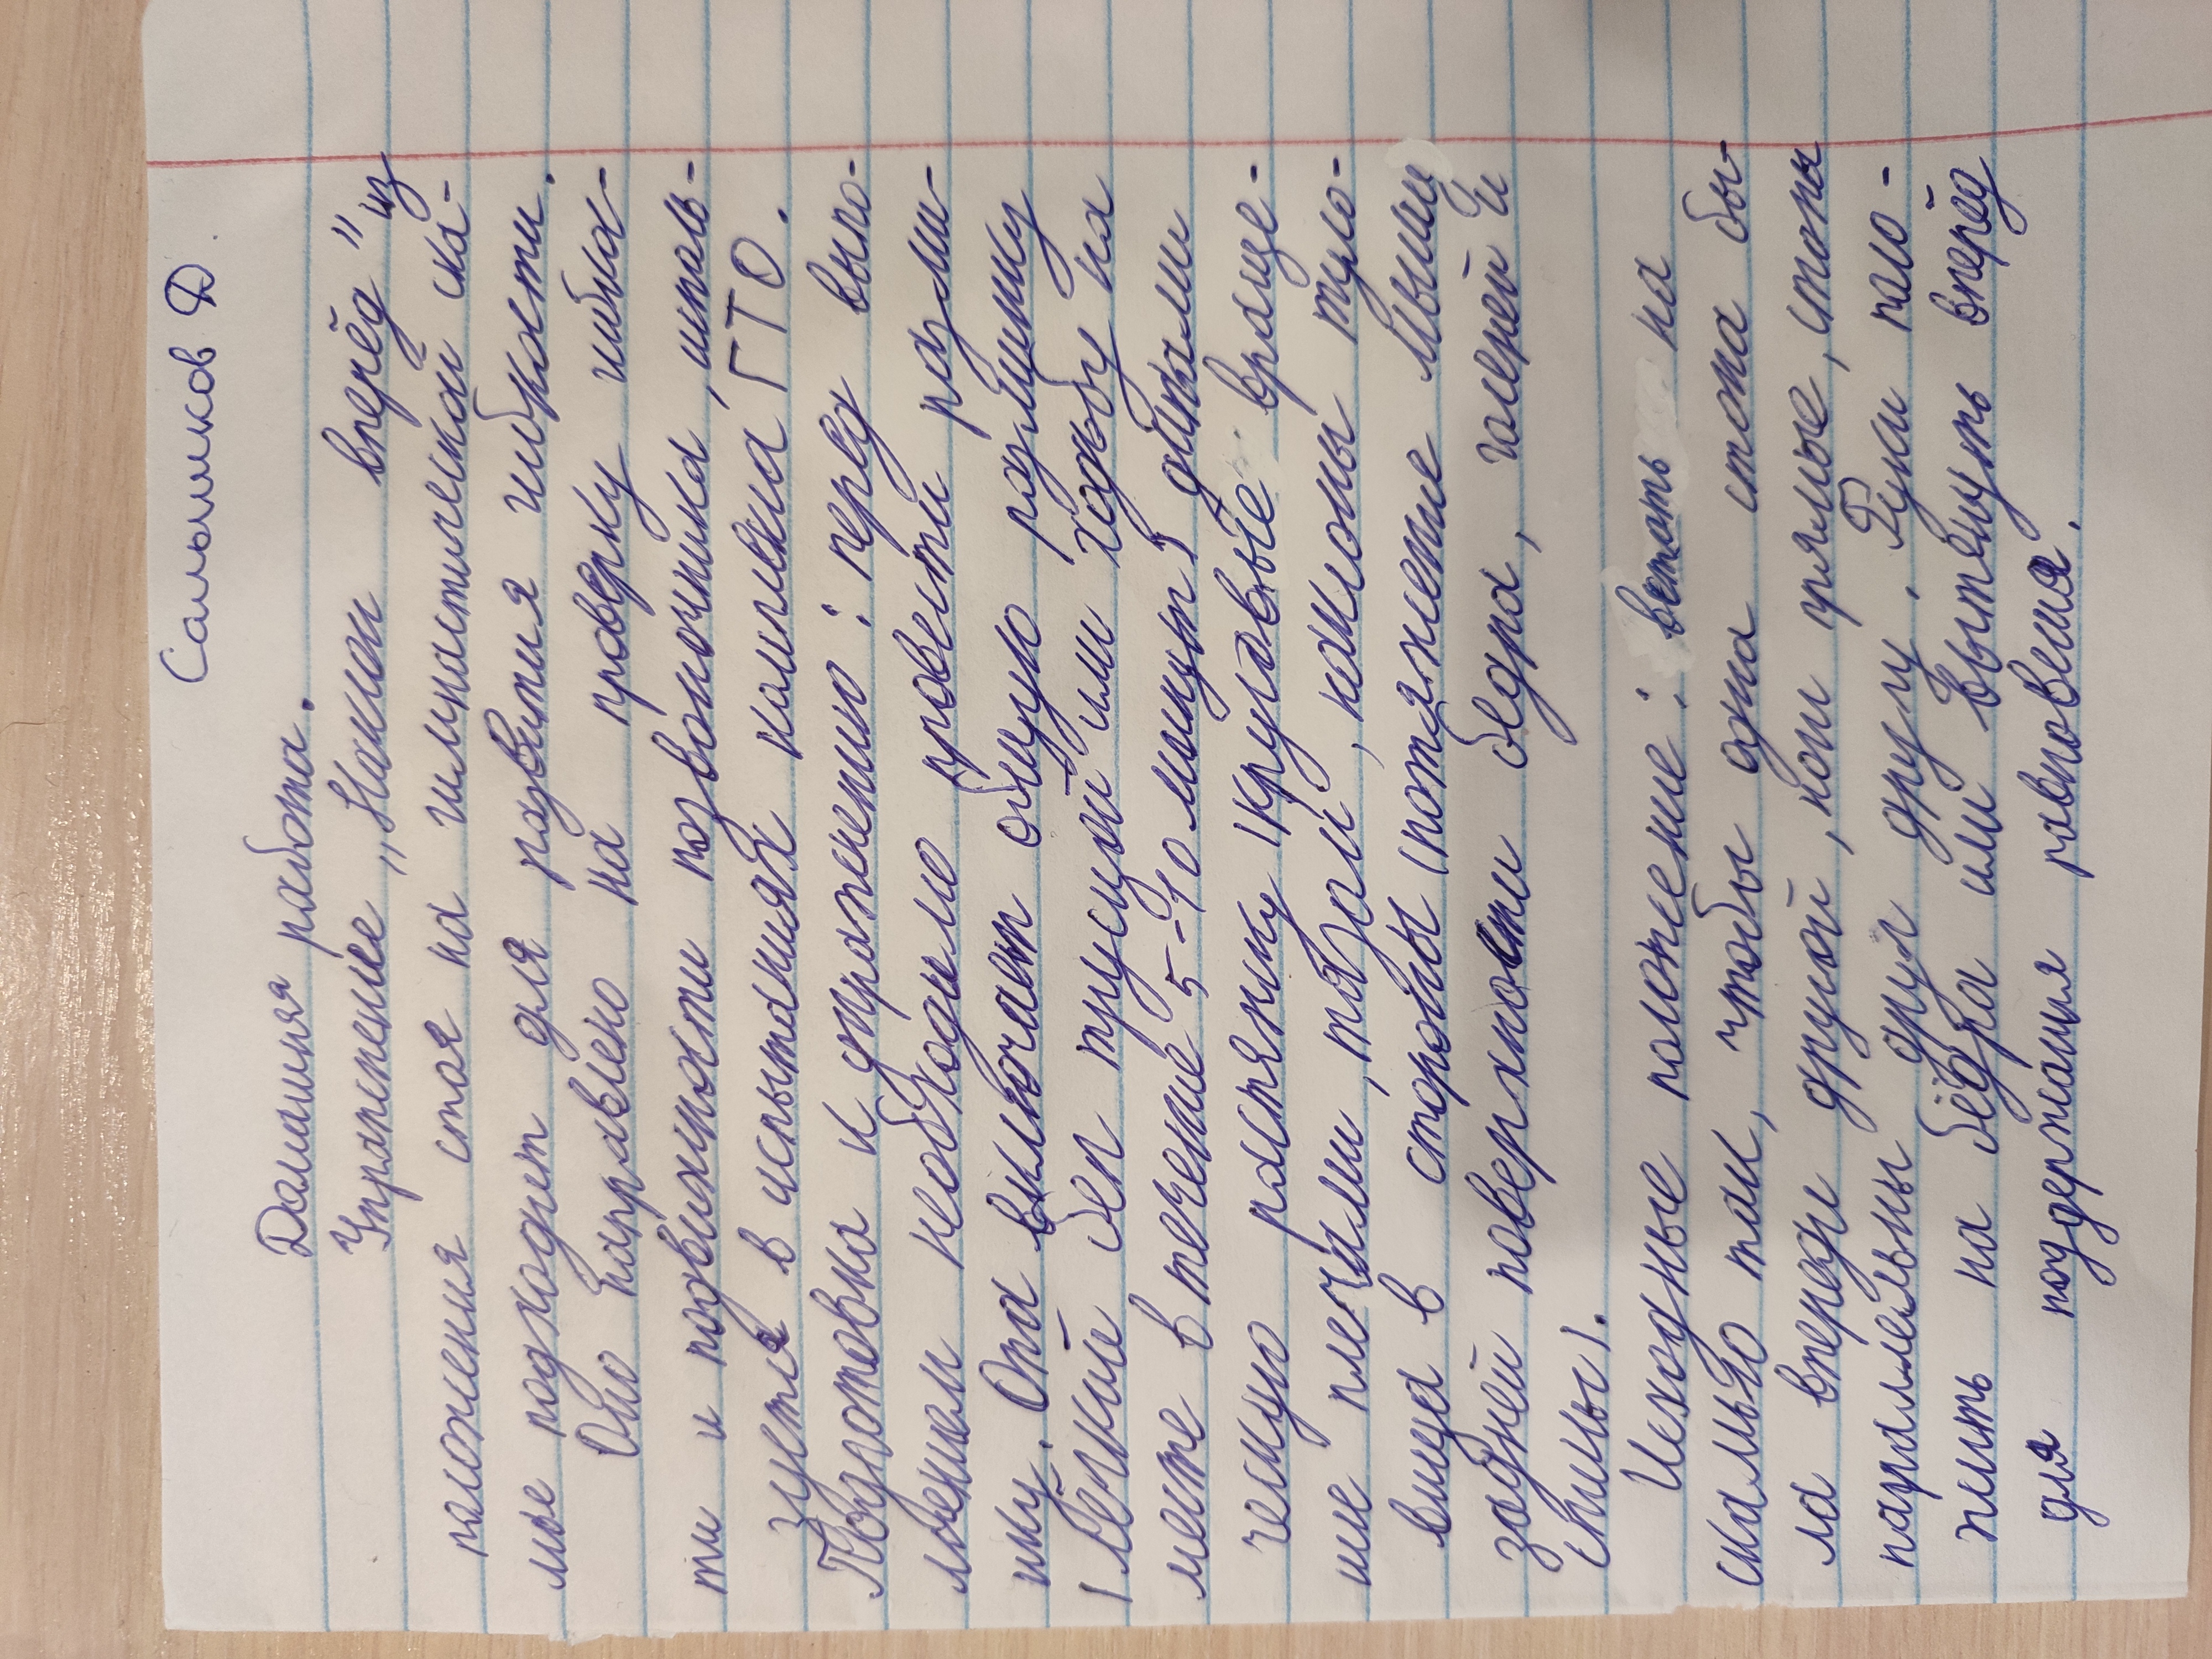 Сальников Д.
Домашняя работа.
Упражнение „Наклон вперёд" из
положения стоя на гимнастической ска-
мье подходит для развития гибкости.
Оно направлено на проверку гибкос-
ти и подвижности позвоночника, исполь-
зуется в испытаниях комплекса ГТО.
Подготовка к упражнению: перед выпо-
лнением необходимо провести разми-
нку. Она включает общую разминку
(лёгкий бег трусцой или ходьбу на
месте в течение 5-10 минут) динами
ческую растяжку (круговые враще-
ние плечами, тазом, наклоны туло-
вища в стороны (потяжение мышц
задней поверхности бедра, голеней и
спины).
Исходные положение: встать на
скамью так, чтобы одна стопа бы-
ла впереди другой, ноги прямые, стопы
параллельны друг другу. Руки поло-
жить на бёдра или вытянуть вперёд
для поддержания равновесия.